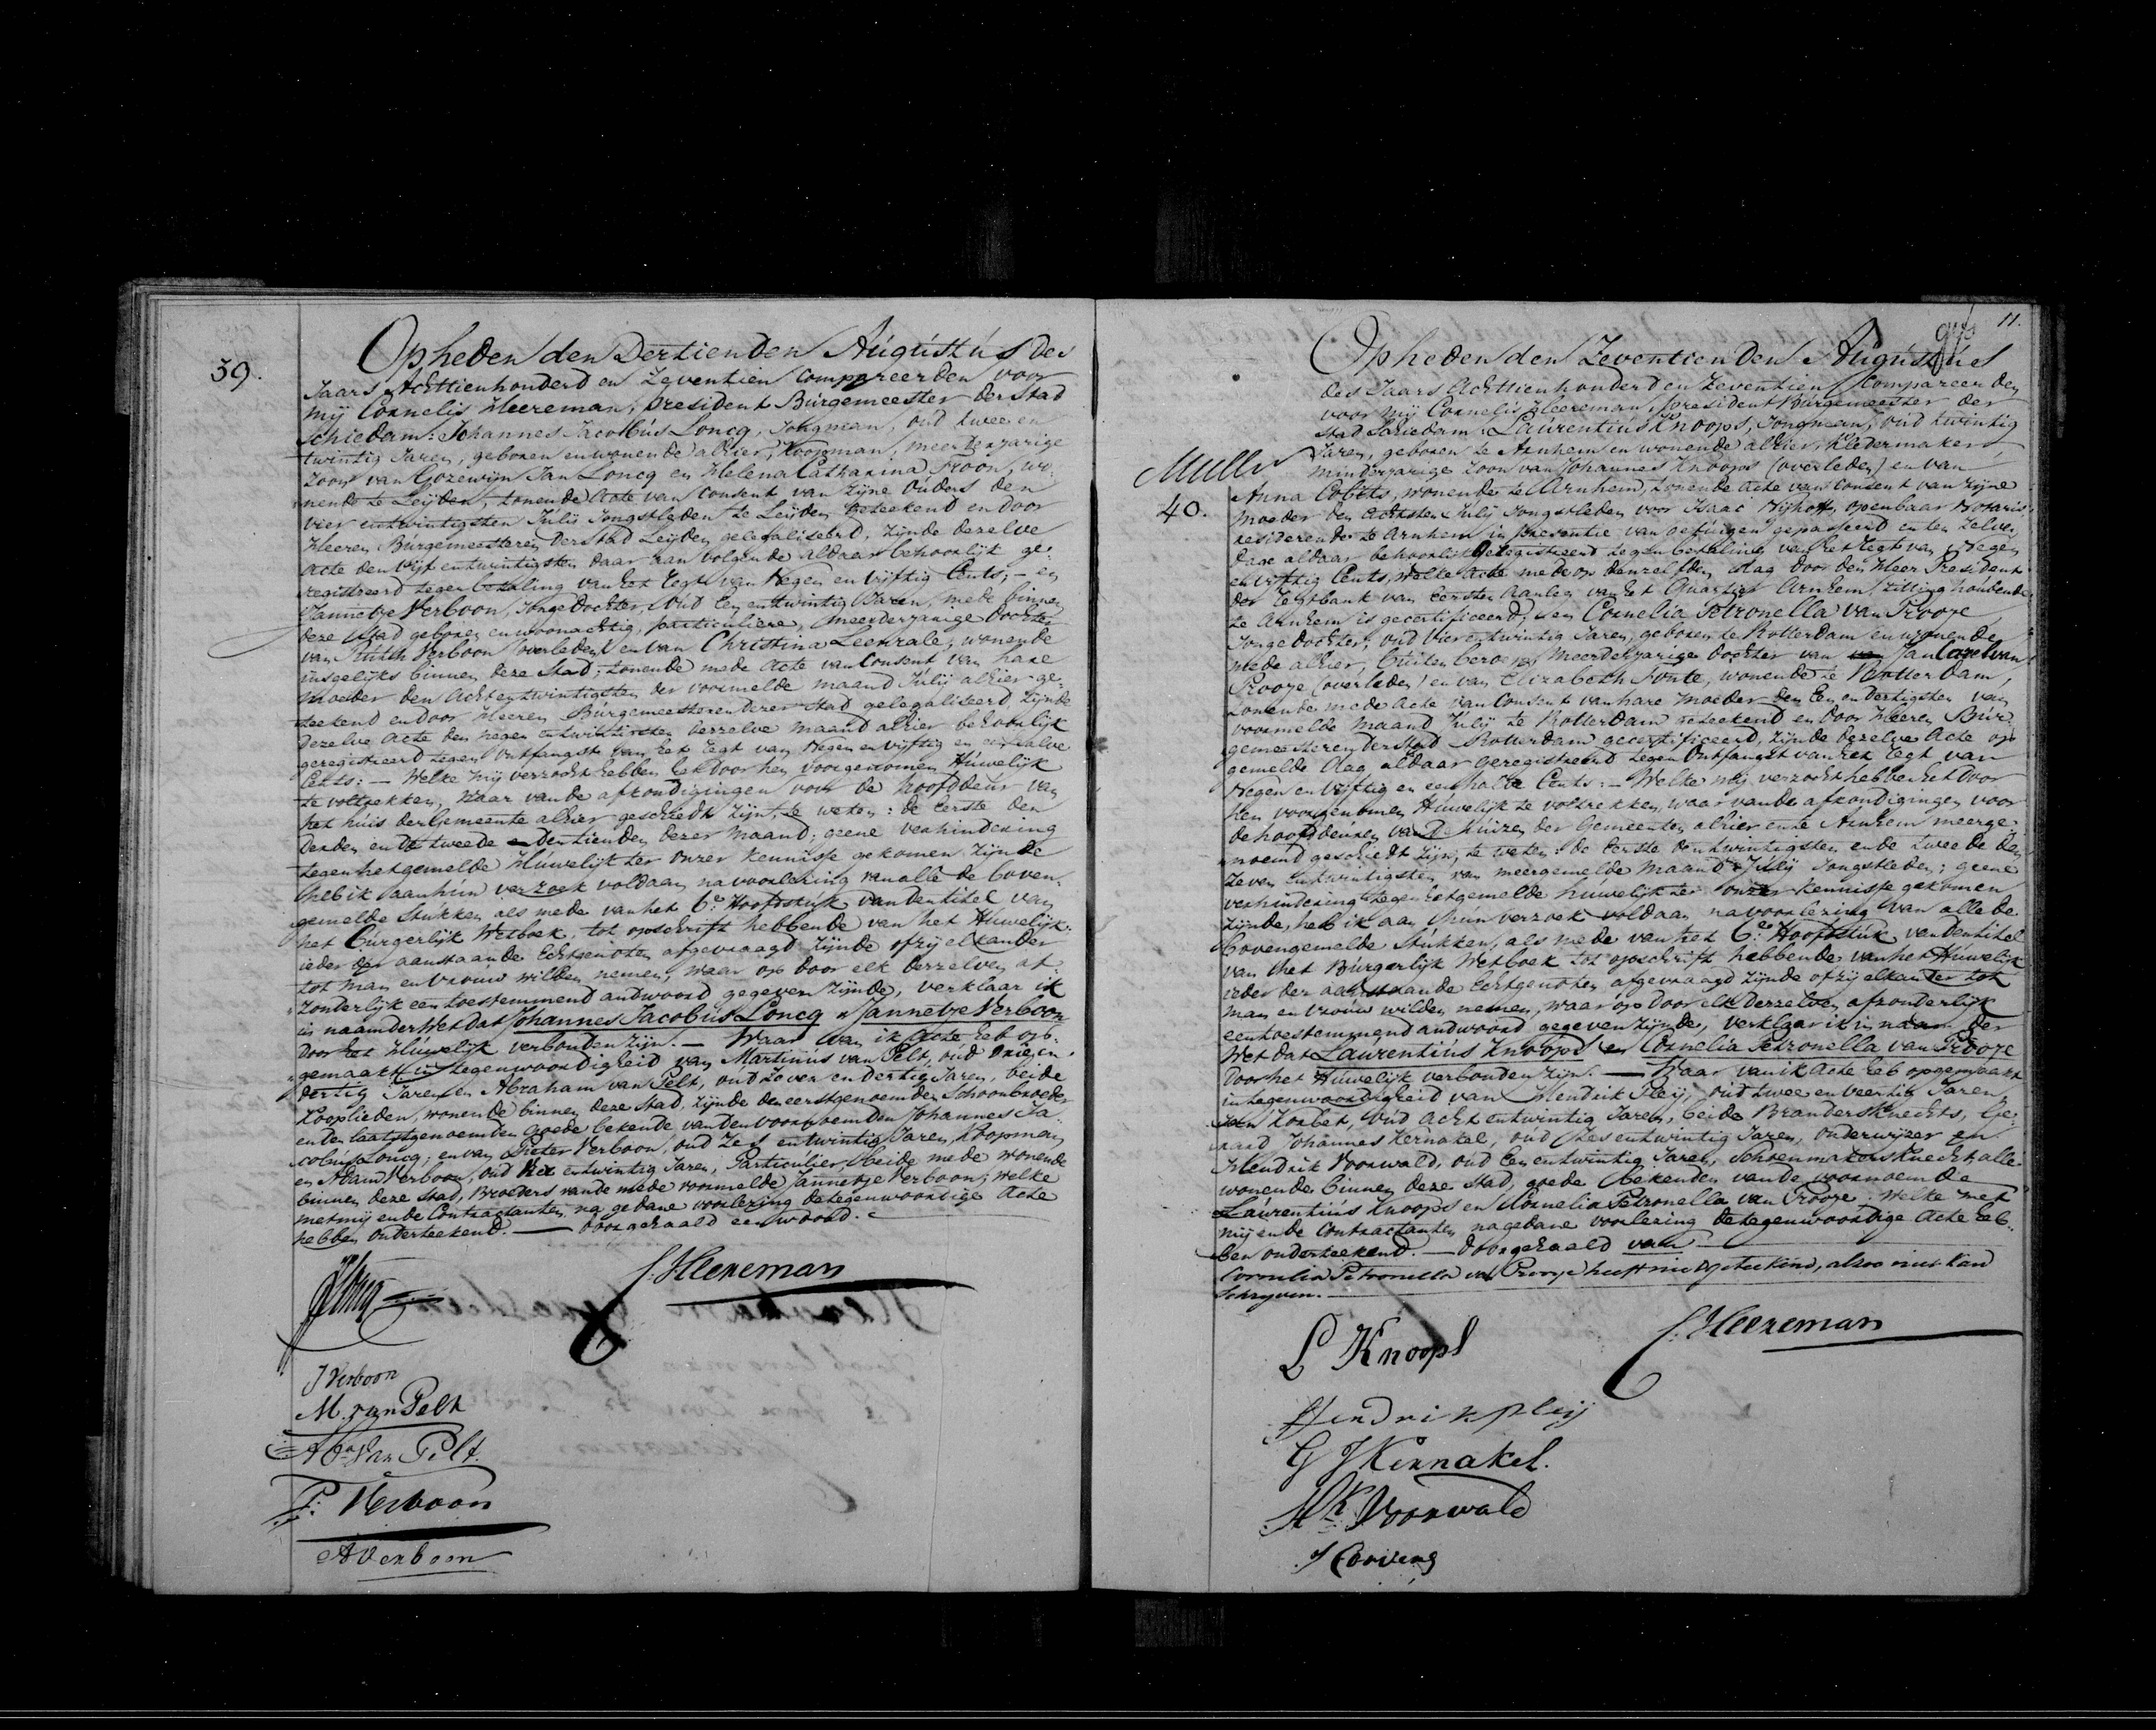 39.
Op heden den Dertienden Augustus des
Jaars Achttienhonderd en Zeventien Compareerden voor
Mij Cornelis Heereman, president Burgemeester der Stad
Schiedam: Johannes Jacobus Loncq, Jongman, oud twee en
twintig Jaren, geboren en wonende alhier, Koopman, meerderjarige
Zoon van Gozewijn Jan Loncq en Helena Catharina Froon, wo¬
nende te Leijden, tonende Acte van Consent van zijne Ouders den
vier entwintigsten Julij Jongstleden te Leijden geteekend en door
Heeren Burgemeesteren der Stad Leijden gelegaliseerd, zijnde dezelve
Acte den vijf entwintigsten daar aan volgende aldaar behoorlijk ge¬
registreerd tegen betaling van het regt van Negen en vijftig Cents; - en
Jannetje Verboon, Jonge Dochter, Oud Een entwintig Jaren, mede binnen
deze Stad geboren en woonachtig, particuliere, meerderjarige Dochter
van Rutth Verboon (overleden) en van Christina Leenrale, wonende
insgelijks binnen deze Stad; tonende mede Acte van Consent van hare
Moeder den Acht entwintigsten der voormelde maand Julij alhier ge¬
teekend en door Heeren Burgemeesteren dezer stad gelegaliseerd, zijnde
dezelve Acte den negen entwintigsten derzelve maand alhier behoorlijk
geregistreerd tegen Ontfangst van het regt van Negen en vijftig en een halve
Cents: - Welke mij verzocht hebben het door hen voorgenomen Huwelijk
te voltrekken, waar van de afkondigingen voor de hoofddeur van
het huis der Gemeente alhier geschiedt zijn, te weten: de Eerste den
Derden en de tweede den tienden dezer maand; geene verhindering
tegen hetgemelde Huwelijk ter onzer kennisse gekomen zijnde
heb ik aan hun verzoek voldaan, na voorlezing van alle de boven¬
gemelde Stukken, als mede van het 6e Hoofdstuk van den titel van
het Burgerlijk Wetboek, tot opschrift hebbende van het Huwelijk.
ieder der aanstaande Echtgenoten afgevraagd zijnde of zij elkander
tot man en vrouw wilden nemen, waar op door elk derzelven af¬
zonderlijk een toestemmend andwoord gegeven zijnde, verklaar ik
in naam der Wet dat Johannes Jacobus Loncq & Jannetje Verboon
door het Huwelijk verbonden zijn. - Waar van ik Acte heb op¬
gemaakt in tegenwoordigheid van Martinus van Pelt, oud drie en
dertig Jaren en Abraham van Pelt, oud Zeven en dertig Jaren, beide
Kooplieden, wonende binnen deze Stad, zijnde den eerstgenoemden Schoonbroeder
en den laatstgenoemden goede bekende van den voornoemden Johannes Ja¬
cobus Loncq; en van Pieter Verboon, oud Zes entwintig Jaren, Koopman
en Adam Verboon, oud Vier entwintig Jaren, Particulier, beide mede wonende
binnen deze Stad, Broeders van de mede voormelde Jannetje Verboon; welke
met mij en de Contractanten, na gedane voorlezing de tegenwoordige Acte
hebben onderteekend. - doorgehaald een woord.
C. Heereman
J Verboon
M. van Pelt
Abm Van Pelt
P: Verboon
A Verboon
11.
Muller
40.
Op heden den Zeventienden Augustus
des Jaars Achttienhonderd en Zeventien Compareerden
voor mij Cornelis Heereman, president Burgemeester der
stad Schiedam: Laurentius Knoops, Jongman, oud twintig
Jaren, geboren te Arnhem en wonende alhier, kledermaker,
minderjarige Zoon van Johannes Knoops (overleden) en van
Anna Cobets, wonende te Arnhem, tonende Acte van Consent van zijne
moeder den achtsten Julij Jongstleden voor Isaac Nijhoff, openbaar Notaris
resideerende te Arnhem in presentie van getuigen gepasseerd en ten zelven
dage aldaar behoorlijk Geregistreerd tegen betaling van het regt van Negen
en vijftig Cents, Welke Acte mede op denzelfden dag door den Heer President
der regtbank van eersten Aanleg van het Quartier Arnhem, zitting houdende
te Arnhem is gecertificeerd; en Cornelia Petronella van Prooye
Jonge Dochter, oud Vier entwintig Jaren, geboren te Rotterdam en wonende
mede alhier, buiten beroep, meerderjarige dochter van Jan Carel van
Prooye (overleden) en van Elizabeth Fonte, wonende te Rotterdam,
tonende mede Acte van Consent van hare Moeder den Een en dertigsten van
voormelde maand Julij te Rotterdam geteekend en door Heeren Bur¬
gemeesteren der stad Rotterdam gecertificeerd, zijnde dezelve Acte op
gemelde dag aldaar geregistreerd tegen Ontfangst van het regt van
Negen en vijftig en een halve Cents: - Welke mij verzocht hebben het door
hen voorgenomen Huwelijk te voltrekken, waar van de afkondigingen voor
de hoofddeuren van de huizen der Gemeenten alhier en te Arnhem meerge¬
noemd geschiedt zijn; te weten: de Eerste den twintigsten en de tweede den
zeven entwintigsten van meergemelde maand Julij Jongstleden; geene
verhindering tegen hetgemelde huwelijk ter onzer kennisse gekomen
zijnde, heb ik aan hun verzoek voldaan na voorlezing van alle de
bovengemelde Stukken, als mede van het 6e Hoofdstuk van den titel
van het Burgerlijk Wetboek tot opschrift hebbende van het Huwelijk
ieder der aanstaande Echtgenoten afgevraagd zijnde of zij elkander tot
man en vrouw wilden nemen, waar op door elk derzelven afzonderlijk
een toestemmend andwoord gegeven zijnde, verklaar ik in naam der
Wet dat Laurentius Knoops en Cornelia Petronella van Prooye
door het Huwelijk verbonden zijn. - Waar van ik Acte heb opgemaakt
in tegenwoordigheid van Hendrik Pleij, oud twee en veertig Jaren,
oud acht entwintig Jaren, beide Brandersknechts, Ge¬
rard Johannes Kernakel, oud Zes entwintig Jaren, onderwijzer en
Hendrik Voorwald, oud Een entwintig Jaren, Schoenmakersknecht, alle
wonende binnen deze Stad, goede bekenden van de voornoemde
Laurentius Knoops en Cornelia Petronella van Prooye. Welke met
mij en de Contractanten na gedane voorlezing de tegenwoordige Acte heb¬
ben onderteekend. - doorgehaald van
Cornelia Petronella van Prooye heeft niet geteekend, alzoo niet kan
Schryven.
C. Heereman
L Knoops
Hendrik pleij
G J Kernakel.
Hk Voorwald